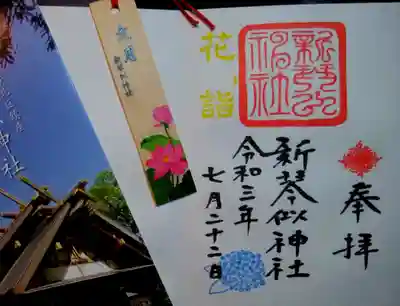 奉拝
新琴似
神社
新琴似神社
令和三年
七月二十二日
花詣
神社